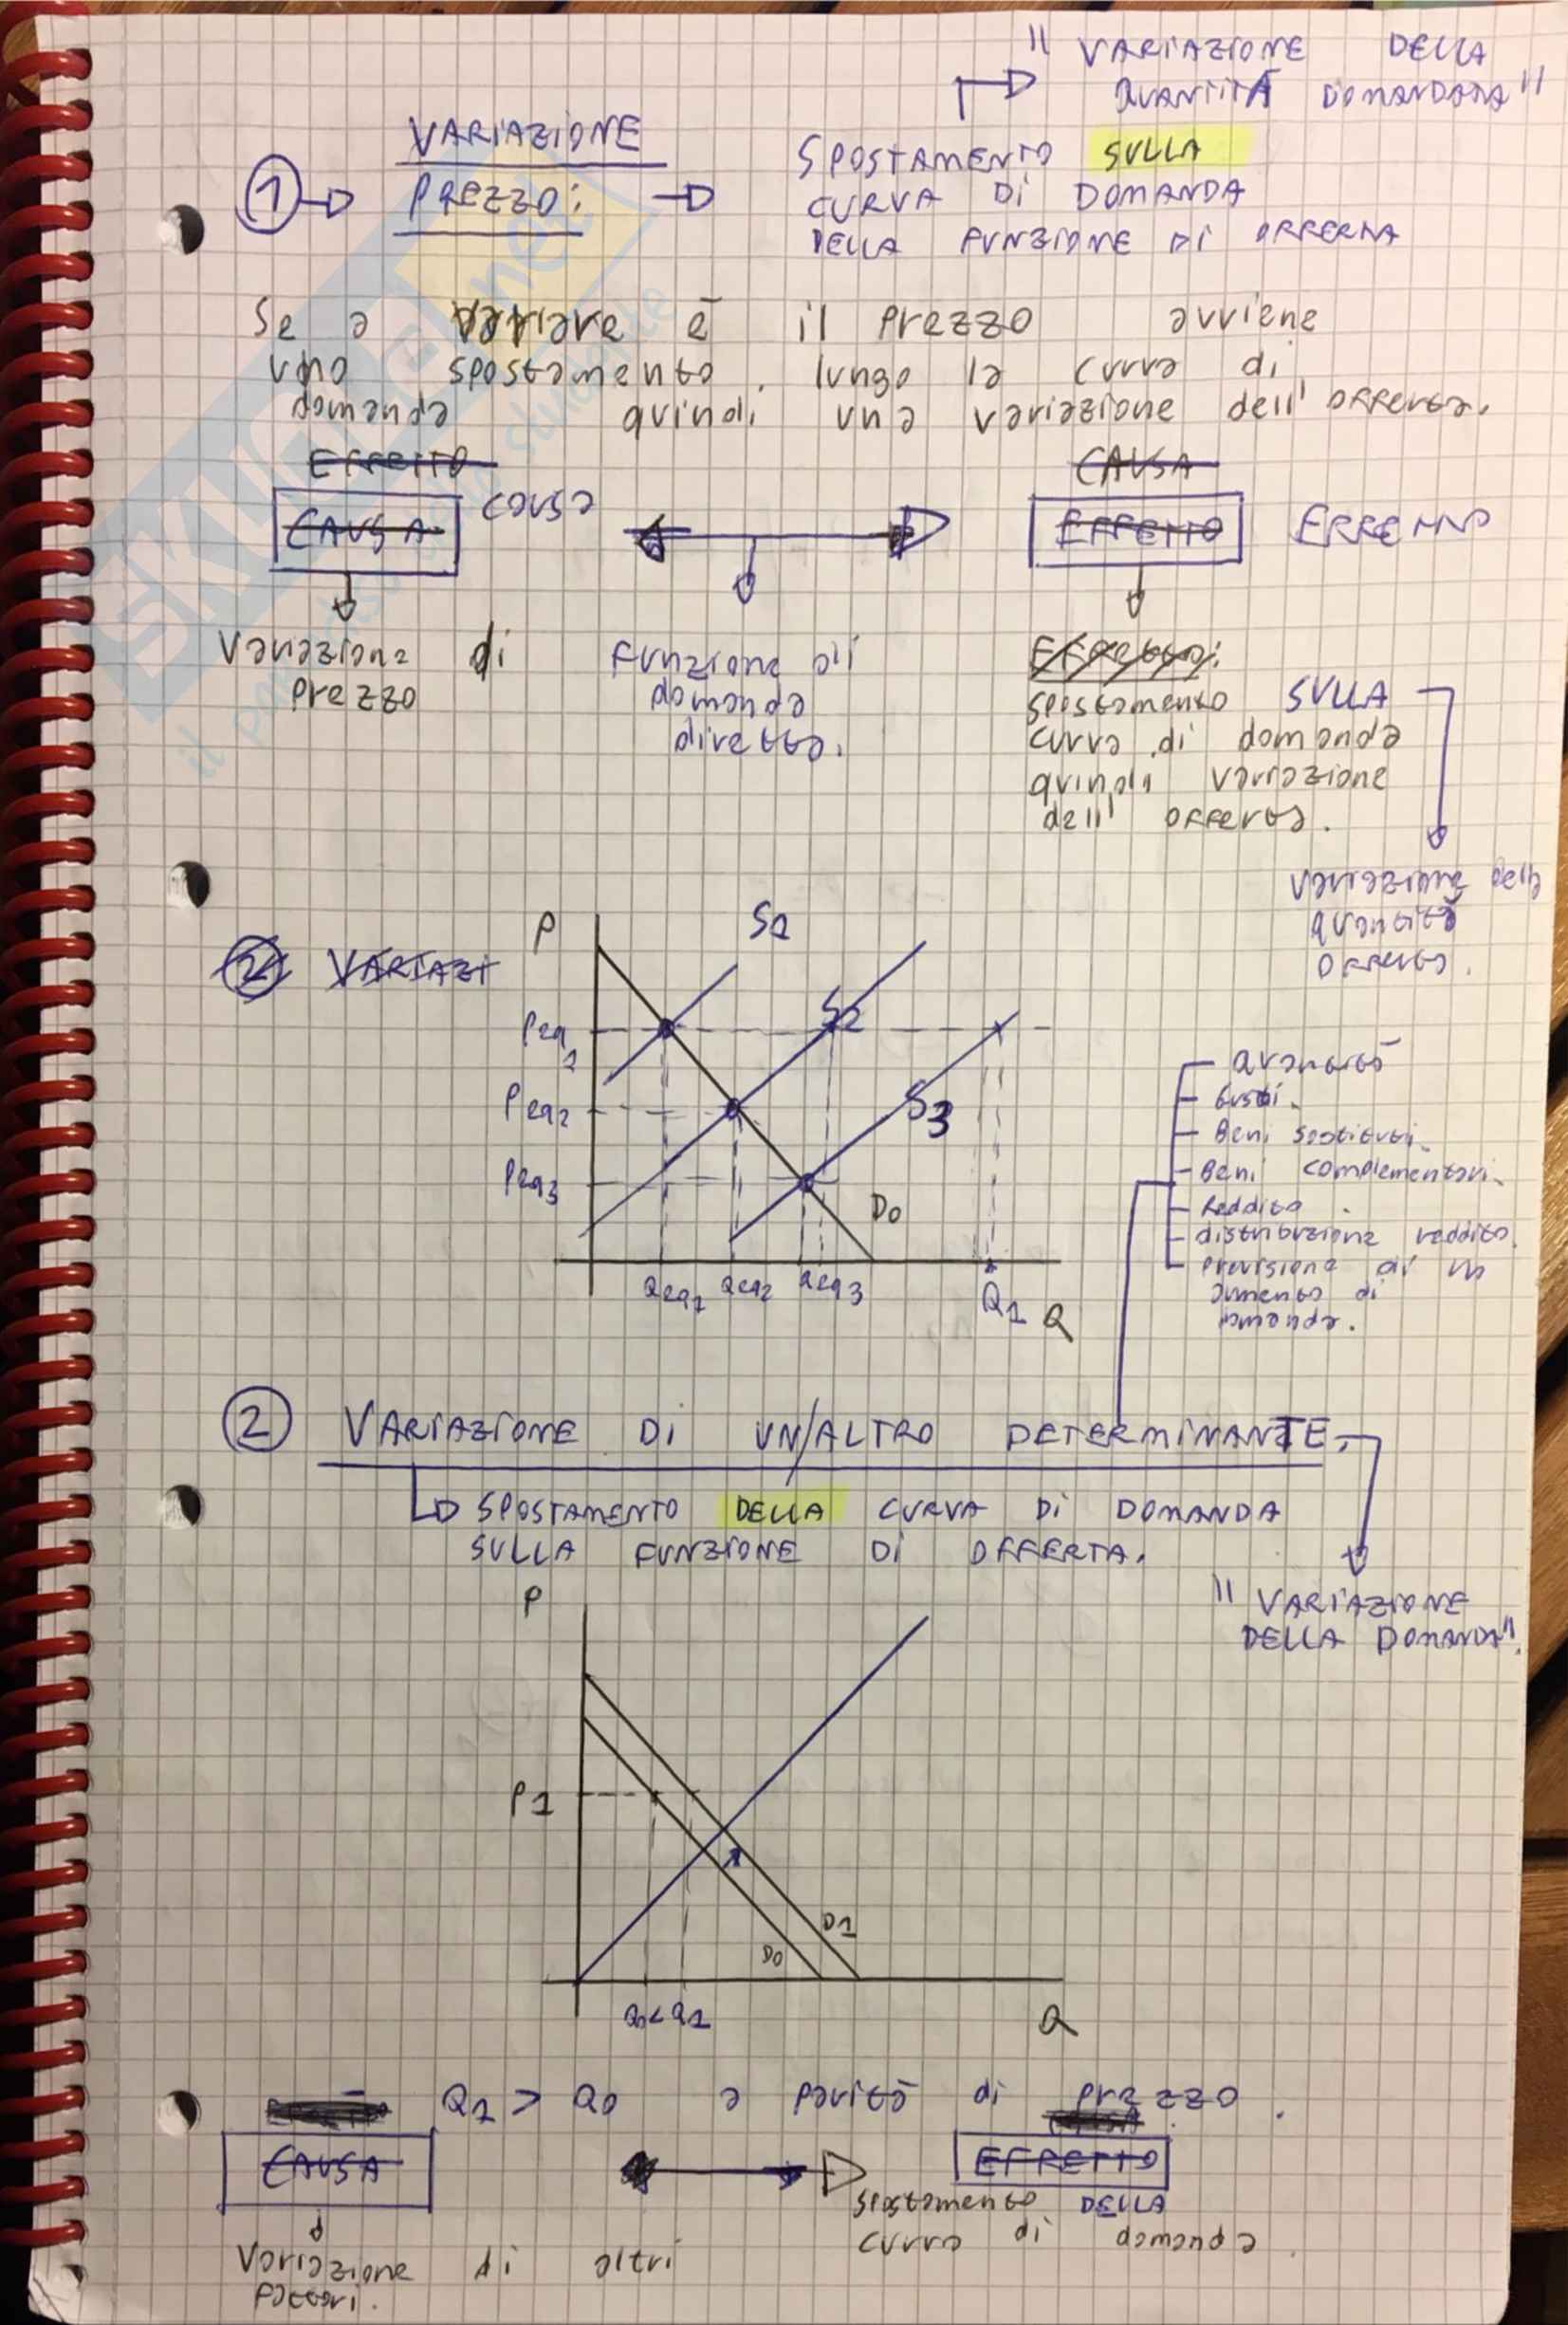 " VARIAZIONE DELLA
QUANTITÀ DOMANDATA "
VARIAZIONE
1 PREZZO:
SPOSTAMENTO SULLA
CURVA DI DOMANDA
DELLA FUNZIONE DI OFFERTA
Se a variare è il prezzo avviene
uno spostamento lungo la curva di
domanda quindi una variazione dell'offerta.
EFFETTO CAUSA
CAUSA causa EFFETTO EFFETTO
Variazione di
prezzo
Funzione di
domanda
diretta.
Effetto:
spostamento SULLA
curva di domanda
quindi variazione
dell' offerta.
variazione della
quantità
offerta.
2 VARIAZI
P
S1
S2
S3
Peq1
Peq2
Peq3
D0
Qeq1 Qeq2 Qeq3 Q1 Q
quantità
Gusti.
Beni sostituti.
Beni complementari.
Reddito.
distribuzione reddito.
previsione di un
aumento di
domanda.
2 VARIAZIONE DI UN/ALTRO DETERMINANTE.
SPOSTAMENTO DELLA CURVA DI DOMANDA
SULLA FUNZIONE DI OFFERTA.
" VARIAZIONE
DELLA DOMANDA".
P
P1
D1
D0
Q0<Q1
Q
Q1 > Q0 a parità di prezzo.
CAUSA EFFETTO
spostamento DELLA
curva di domanda.
Variazione di altri
fattori.
SKUOLA.net